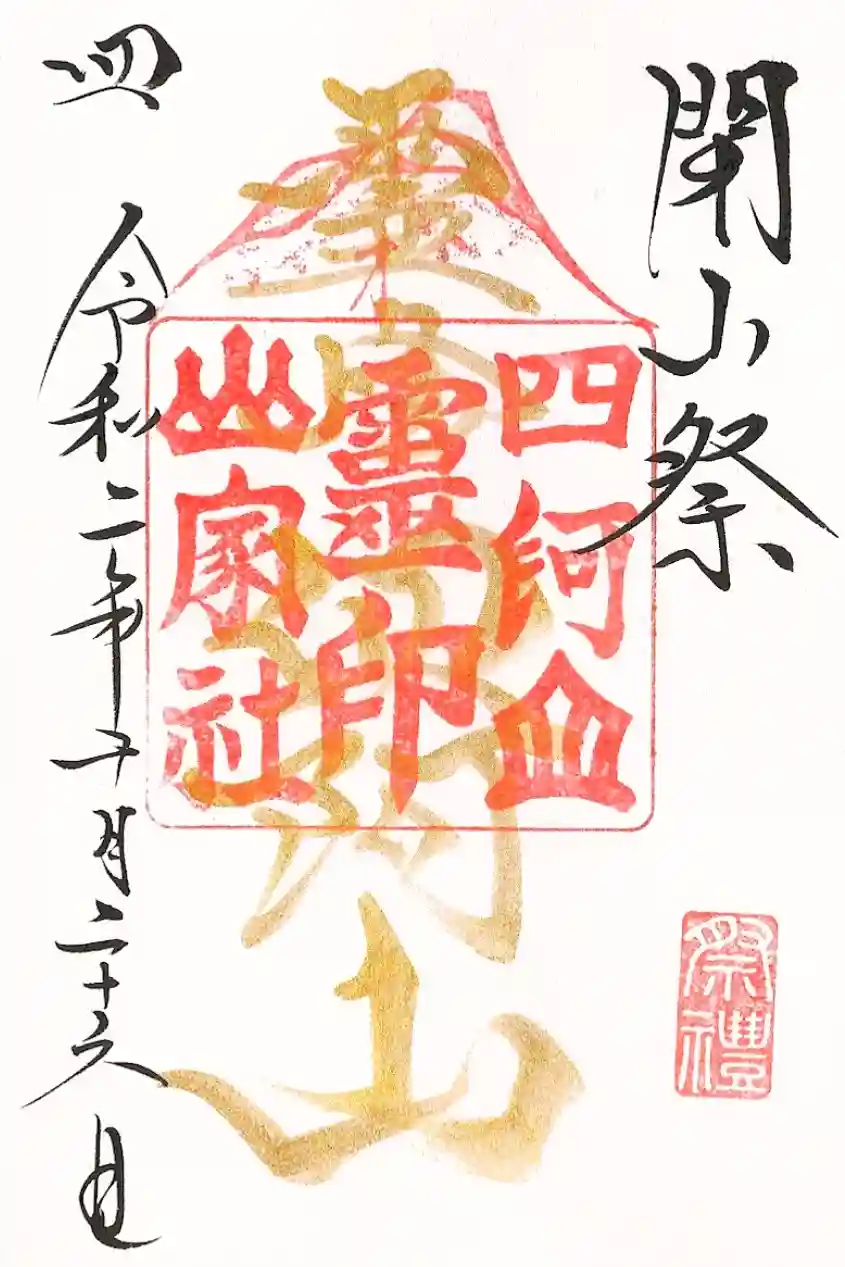 閉山祭
霊
四阿山
四阿山
靈印
山家社
令和二年十月二十六日
祭禮